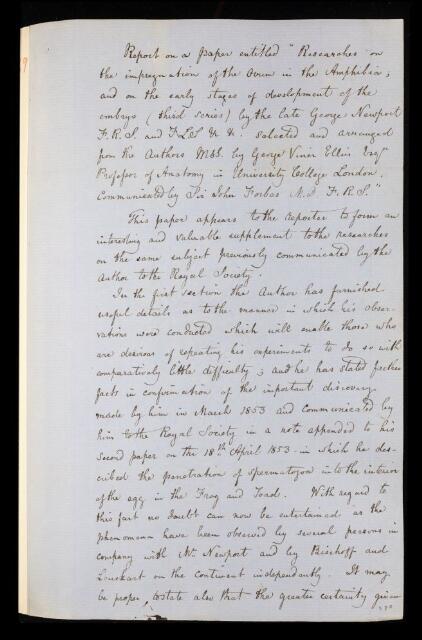 Report on a paper entitled "Researches on
the impregnation of the Ovum in the Amphibia;
and on the early stages of development of the
embryo (third series) by the late George Newport
F.R.S. and F.L.S &c &c. Selected and arranged
from the Authors MSS. by George Viner Ellis Esqr
Professor of Anatomy in University College London.
Communicated by Sir John Forbes M.D. F.R.S."
This paper appears to the reporter to form an
interesting and valuable supplement to the researches
on the same subject previously communicated by the
Author to the Royal Society.
In the first section the Author has furnished
useful details as to the manner in which his obser-
vations were conducted which will enable those who
are desirous of repeating his experiments to do so with
comparatively little difficulty; and he has stated further
facts in confirmation of the important discovery
made by him in March 1853 and communicated by
him to the Royal Society in a note appended to his
second paper on the 18th April 1853 in which he des-
cribed the penetration of spermatozoa into the interior
of the egg in the Frog and Toad. With regard to
this fact no doubt can now be entertained as the
phenomena have been observed by several persons in
company with Mr Newport and by Bischoff and
Leuckart on the continent independently. It may
be proper to state also that the greater certainty given